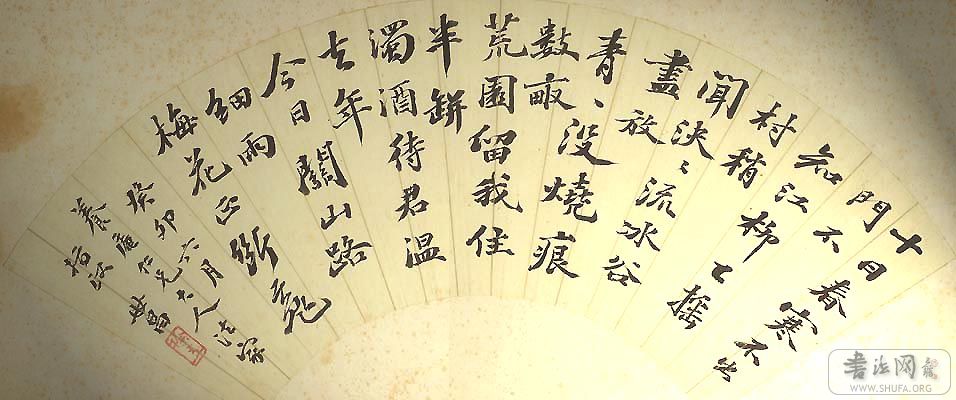 十日春寒不出
門不
知江柳已搖
村稍
聞決〻流冰谷
盡放
青〻沒燒痕
數畝
荒園留我住
半缾
濁酒待君溫
去年
今日關山路
細雨
梅花正斷魂
癸卯六月
養庵仁兄大人法家
世昌
書法网
WWW.SHUFA.ORG